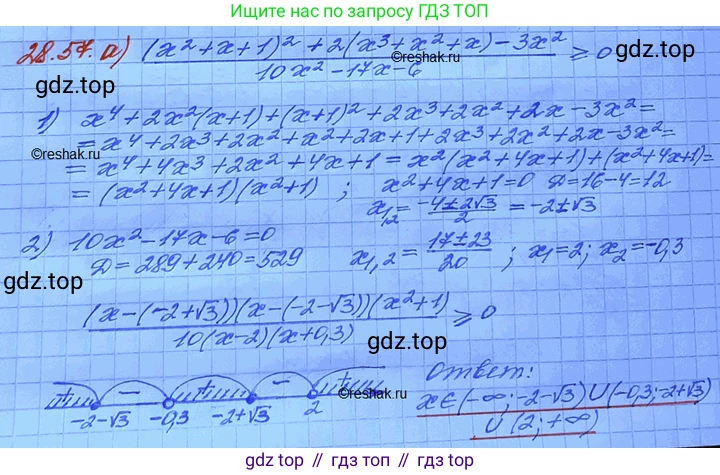 Ищите нас по запросу ГДЗ ТОП
28.57. а) ((x²+x+1)² + 2(x³+x²+x) - 3x²) / (10x² - 17x - 6) ≥ 0
©reshak.ru
gdz.top
gdz.top
1) x⁴ + 2x²(x+1) + (x+1)² + 2x³ + 2x² + 2x - 3x² =
= x⁴ + 2x³ + 2x² + x² + 2x + 1 + 2x³ + 2x² + 2x - 3x² =
©reshak.ru
= x⁴ + 4x³ + 2x² + 4x + 1 = x²(x² + 4x + 1) + (x² + 4x + 1) =
= (x² + 4x + 1)(x² + 1) ; x² + 4x + 1 = 0 Д = 16 - 4 = 12
x₁,₂ = (-4 ± 2√3) / 2 = -2 ± √3
2) 10x² - 17x - 6 = 0
Д = 289 + 240 = 529 x₁,₂ = (17 ± 23) / 20 ; x₁ = 2; x₂ = -0,3
gdz.top
((x - (-2+√3))(x - (-2-√3))(x² + 1)) / (10(x - 2)(x + 0,3)) ≥ 0
gdz.top
+ - + - +
-2-√3 -0,3 -2+√3 2
©reshak.ru
Ответ:
x ∈ (-∞; -2-√3) U (-0,3; -2+√3)
U (2; +∞)
©reshak.ru
gdz.top // гдз.топ // gdz.top